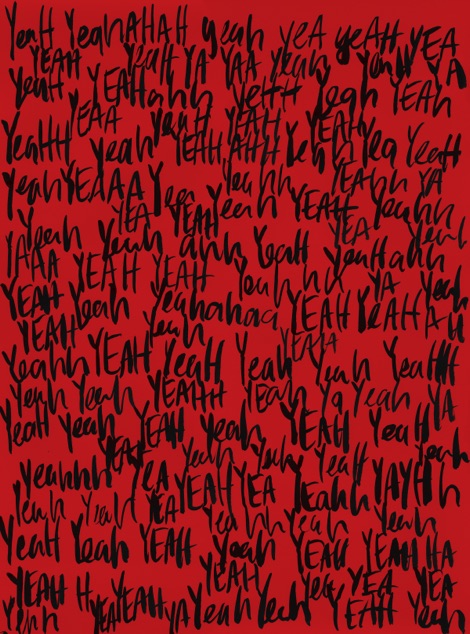 YeaH YeahAHAH yeah yeA yeAH YEA
YEAH YeaH YA YAA Yeah Yeah YA
Yeah YEAHahh YeHH Yeah YEAh
YEAA YeaH YEAH YEAH
YeaHH yeah YEAH AHH Yeah Yea YeaH
YeahYEAAA Yea Yeahh YEAhh YA
YEA YEAH Yeah YEAH Yeahh
Yeah Yeah ahh YeaH YEA Yeah
YAAA YEAH YEAH YeaHahh
YEAH Yeah Yeahahaa YEAH YeAHAH
YEAH Yeah YEAHA
Yeahh YEAH YeaH Yeah Yeah YeaHH
Yeah Yeah YEAHH YEAh Ya Yeah YA
YeaH Yeah YEAH Yeah YEAH YeaH
YEAH Yeah Yeah YeaH Yeah
yeahhh YEA YEAH YEA Yeahh YAYHh
Yeah Yeah YEA Yeahhh Yeah Yeah
YeaH Yeah YEAH Yeah YEAH YEAHHA
YEAH
YEAH H YEAH Yea YEA YEA
Yeah YEAH YA Yeah Yeah YEAH Yeah